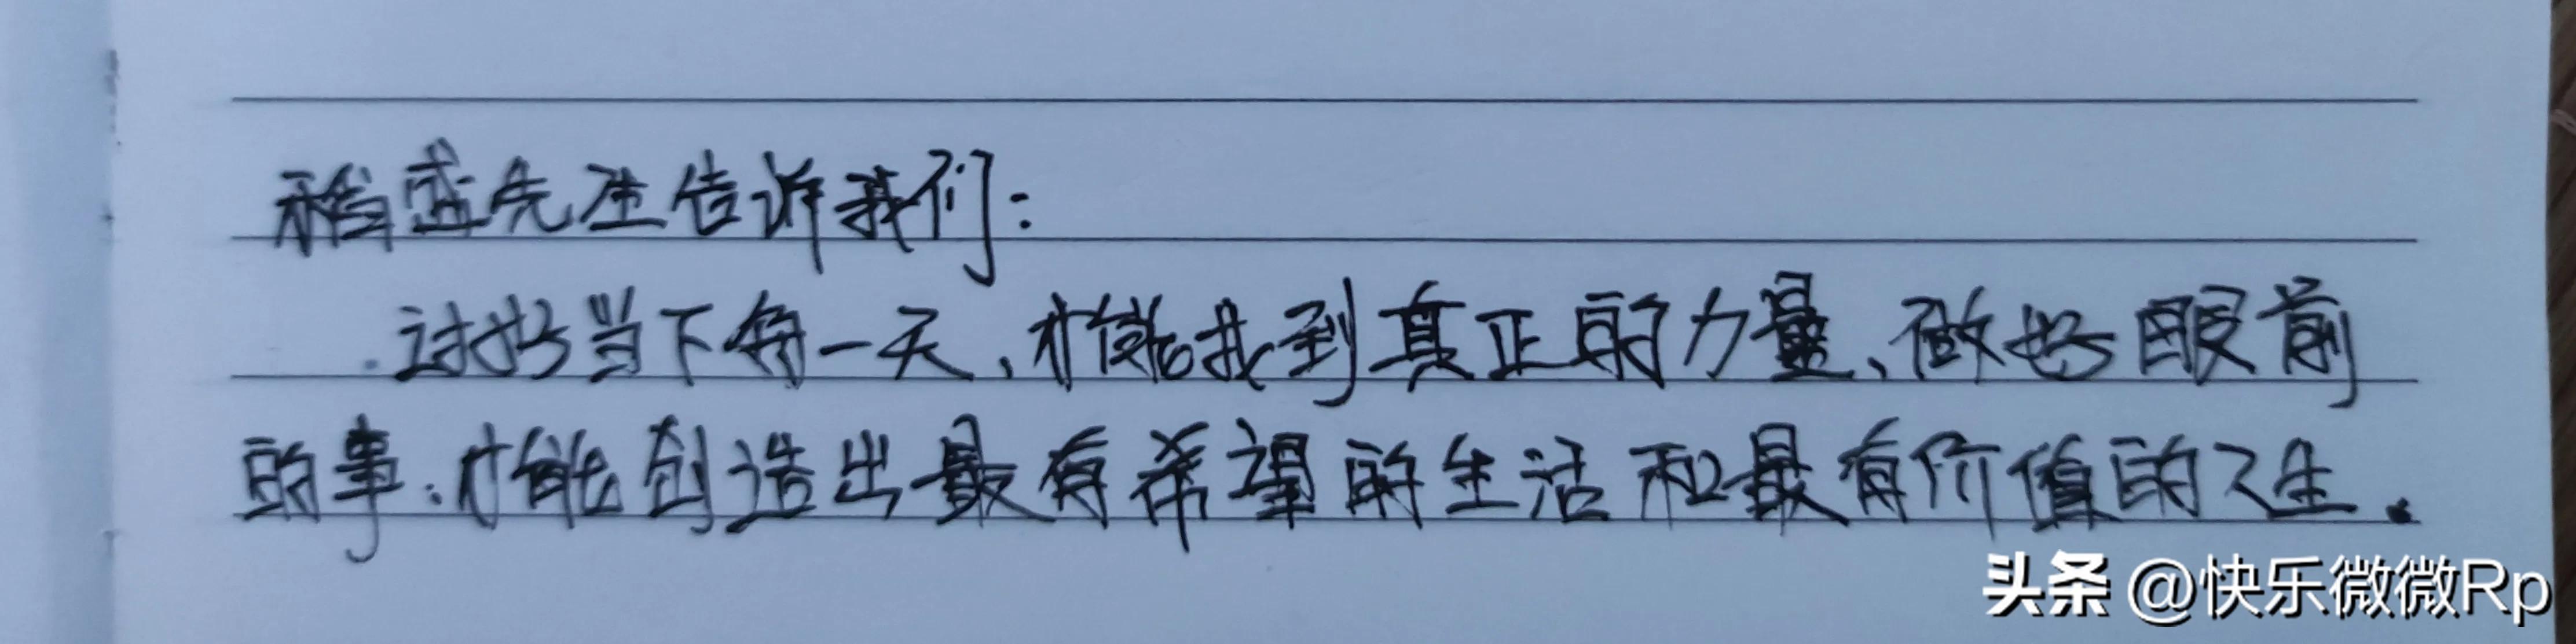 稻盛先生告诉我们：
过好当下每一天、才能找到真正的力量、做好眼前
的事.才能创造出最有希望的生活和最有价值的人生.
头条 @快乐微微Rp